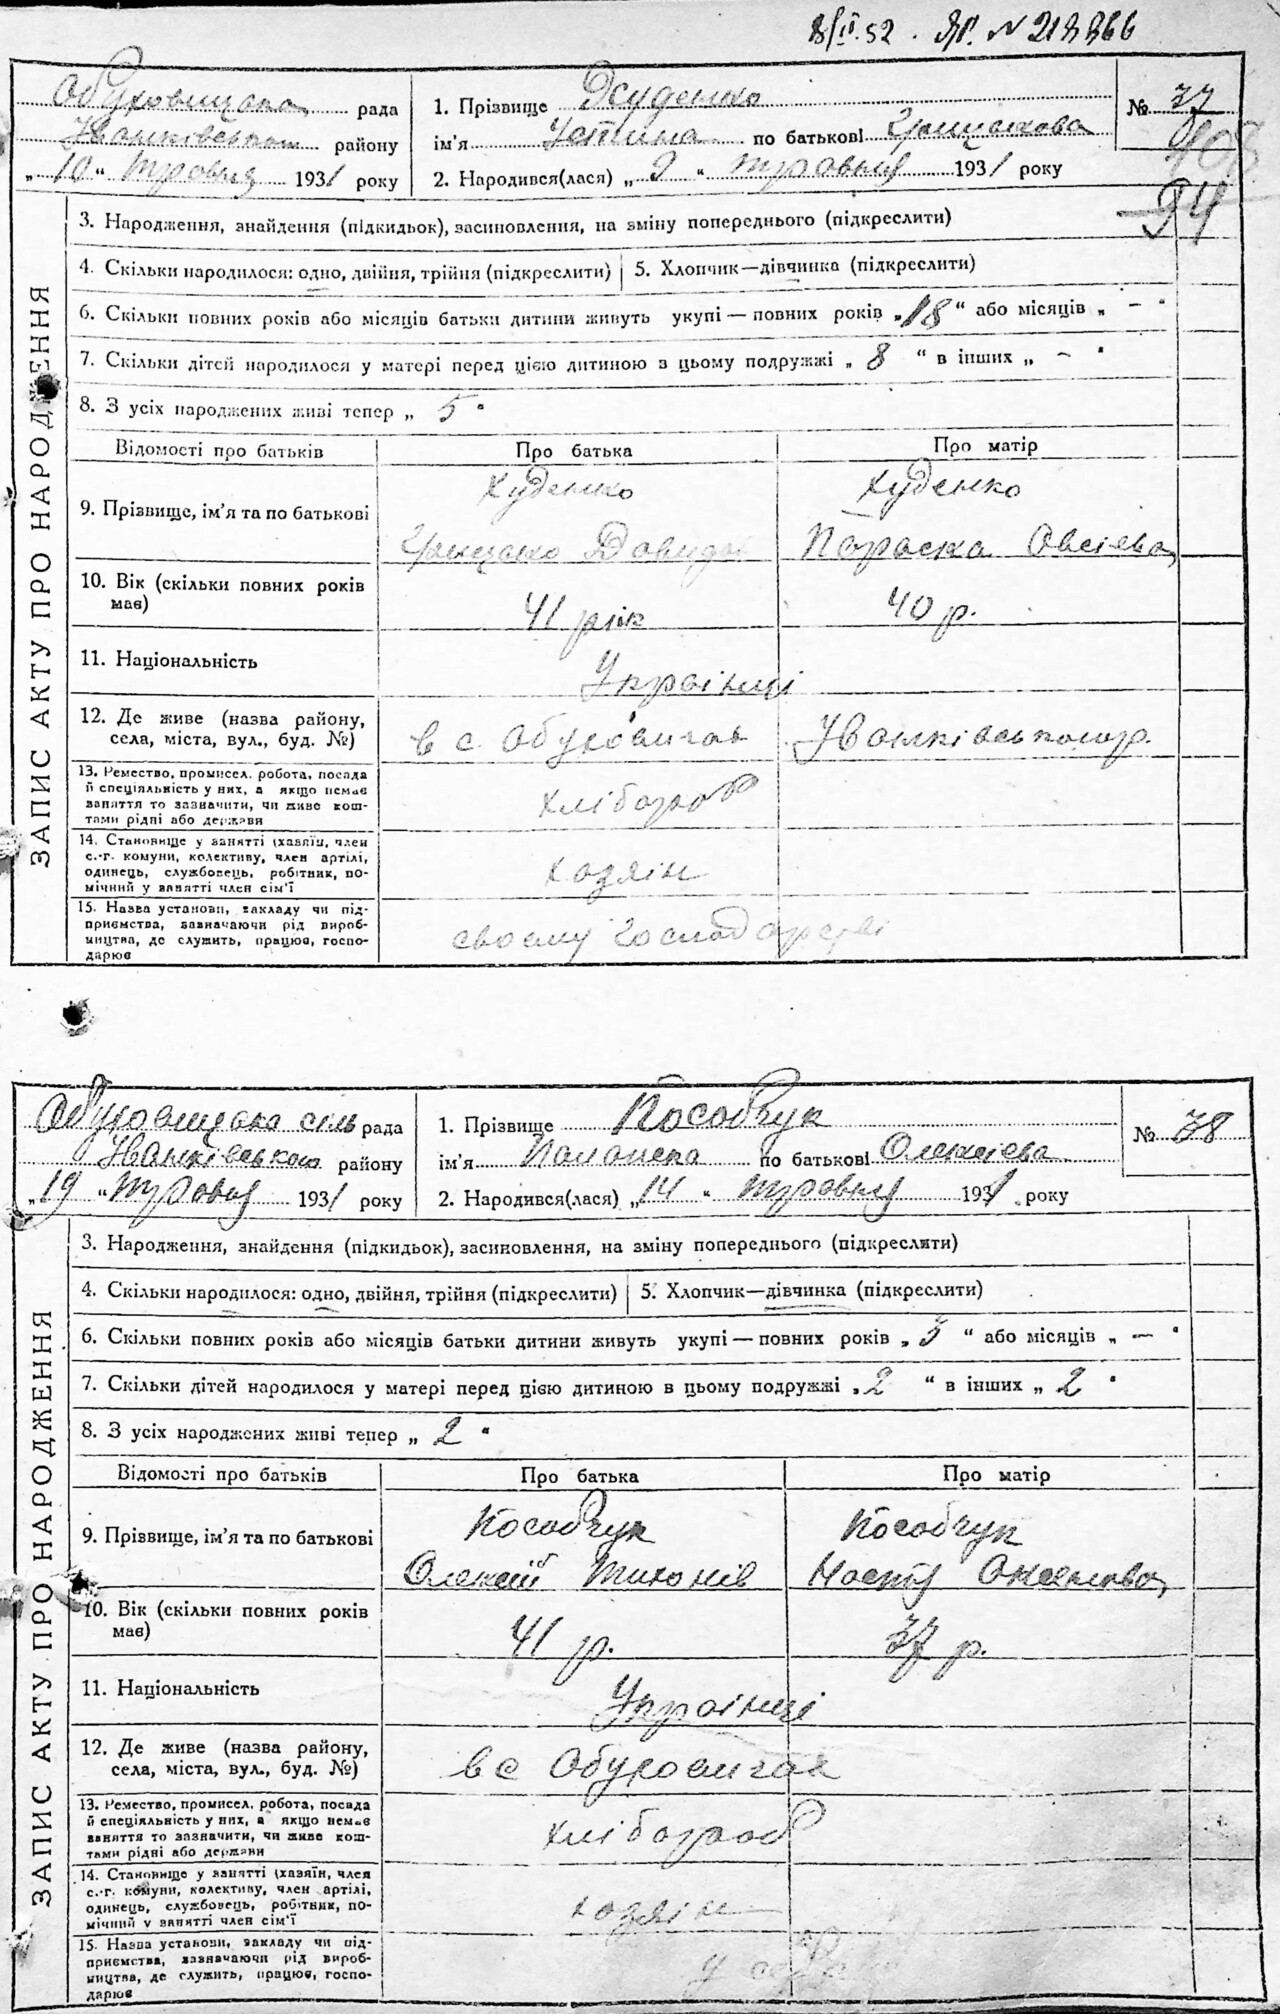 8/II.52. № 218866
Обуховицька рада
Іванківського району
„10“ травня 1931 року
1. Прізвище Худенко
ім'я Устина по батькові Грицькова
2. Народився(лася) „9“ травня 1931 року
№ 37
108
94
ЗАПИС АКТУ ПРО НАРОДЖЕННЯ
3. Народження, знайдення (підкидьок), засиновлення, на зміну попереднього (підкреслити)
4. Скільки народилося: одно, двійня, трійня (підкреслити) 5. Хлопчик—дівчинка (підкреслити)
6. Скільки повних років або місяців батьки дитини живуть укупі — повних років „18“ або місяців „—“
7. Скільки дітей народилося у матері перед цією дитиною в цьому подружжі „8“ в інших „—“
8. З усіх народжених живі тепер „5“
Відомості про батьків Про батька Про матір
9. Прізвище, ім'я та по батькові
Худенко Худенко
Грицько Давидов Параска Овсієва
10. Вік (скільки повних років
має)
41 рік 40 р.
11. Національність
Українці
12. Де живе (назва району,
села, міста, вул., буд. №)
в с. Обуховичах Іванківського р.
13. Ремество, промисел, робота, посада
й спеціяльність у них, а якщо немає
заняття то зазначити, чи живе кош-
тами рідні або держави
хлібороб
14. Становище у занятті (хазяїн, член
с.-г. комуни, колективу, член артілі,
одинець, службовець, робітник, по-
мічний у занятті член сім'ї
хозяін
15. Назва установи, закладу чи під-
приємства, зазначаючи рід вироб-
ництва, де служить, працює, госпо-
дарює
своєму господарстві
Обуховицька сіль рада
Іванківського району
„19“ травня 1931 року
1. Прізвище Кособчук
ім'я Паланска по батькові Олексієва
2. Народився(лася) „14“ травня 1931 року
№ 38
ЗАПИС АКТУ ПРО НАРОДЖЕННЯ
3. Народження, знайдення (підкидьок), засиновлення, на зміну попереднього (підкреслити)
4. Скільки народилося: одно, двійня, трійня (підкреслити) 5. Хлопчик—дівчинка (підкреслити)
6. Скільки повних років або місяців батьки дитини живуть укупі — повних років „3“ або місяців „—“
7. Скільки дітей народилося у матері перед цією дитиною в цьому подружжі „2“ в інших „2“
8. З усіх народжених живі тепер „2“
Відомості про батьків Про батька Про матір
9. Прізвище, ім'я та по батькові
Кособчук Кособчук
Олексій Тихонів Настя
10. Вік (скільки повних років
має)
41 р. 37 р.
11. Національність
Українці
12. Де живе (назва району,
села, міста, вул., буд. №)
в с Обуховичах
13. Ремество, промисел, робота, посада
й спеціяльність у них, а якщо немає
заняття то зазначити, чи живе кош-
тами рідні або держави
хлібороб
14. Становище у занятті (хазяїн, член
с.-г. комуни, колективу, член артілі,
одинець, службовець, робітник, по-
мічний у занятті член сім'ї
хозяін
15. Назва установи, закладу чи під-
приємства, зазначаючи рід вироб-
ництва, де служить, працює, госпо-
дарює
у